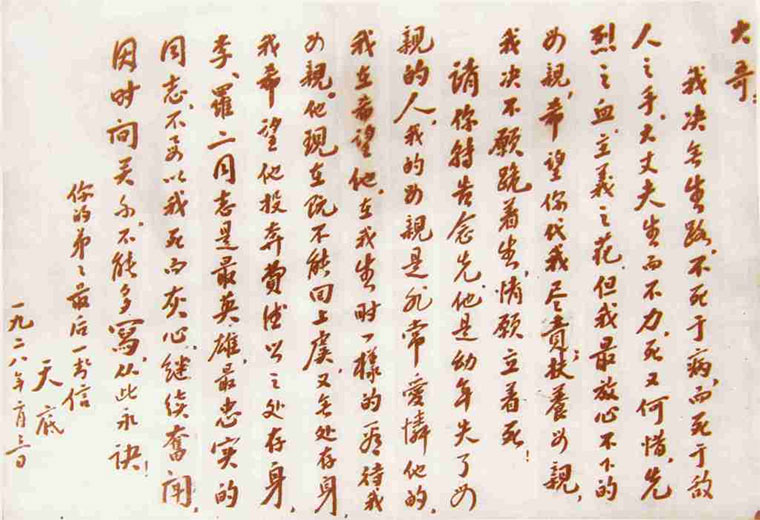 大哥:
我决无生路,不死于病,而死于敌
人之手,大丈夫生而不力,死又何惜,先
烈之血,主义之花,但我最放心不下的
母親,希望你代我尽责,扶養母親,
我决不願跪着生,情願立着死!
請你转告念先,他是幼年失了母
親的人,我的母親是非常愛憐他的,
我立希望他,在我生时一樣的看待我
母親。他现在既不能回上虞,又无处存身
我希望他投奔費德以之处存身。
李、羅二同志是最英雄最忠实的
同志,不要以我死而灰心,继续奋闘,
因时间关系,不能多寫,从此永訣!
你的弟弟最后一封信
天底
一九二八年二月三日